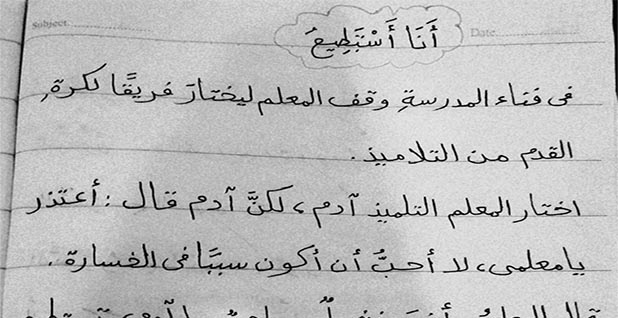 Subject
Date
أَنَا أَسْتَطِيعُ
فى فناء المدرسةِ وقف المعلم ليختارَ فريقًا لكرةِ
القدم من التلاميذ .
اختار المعلم التلميذ آدم ، لكنَّ آدم قال : أعتذر
يا معلمى ، لا أحبُّ أن أكون سببًا فى الخسارة .
قال المعلم